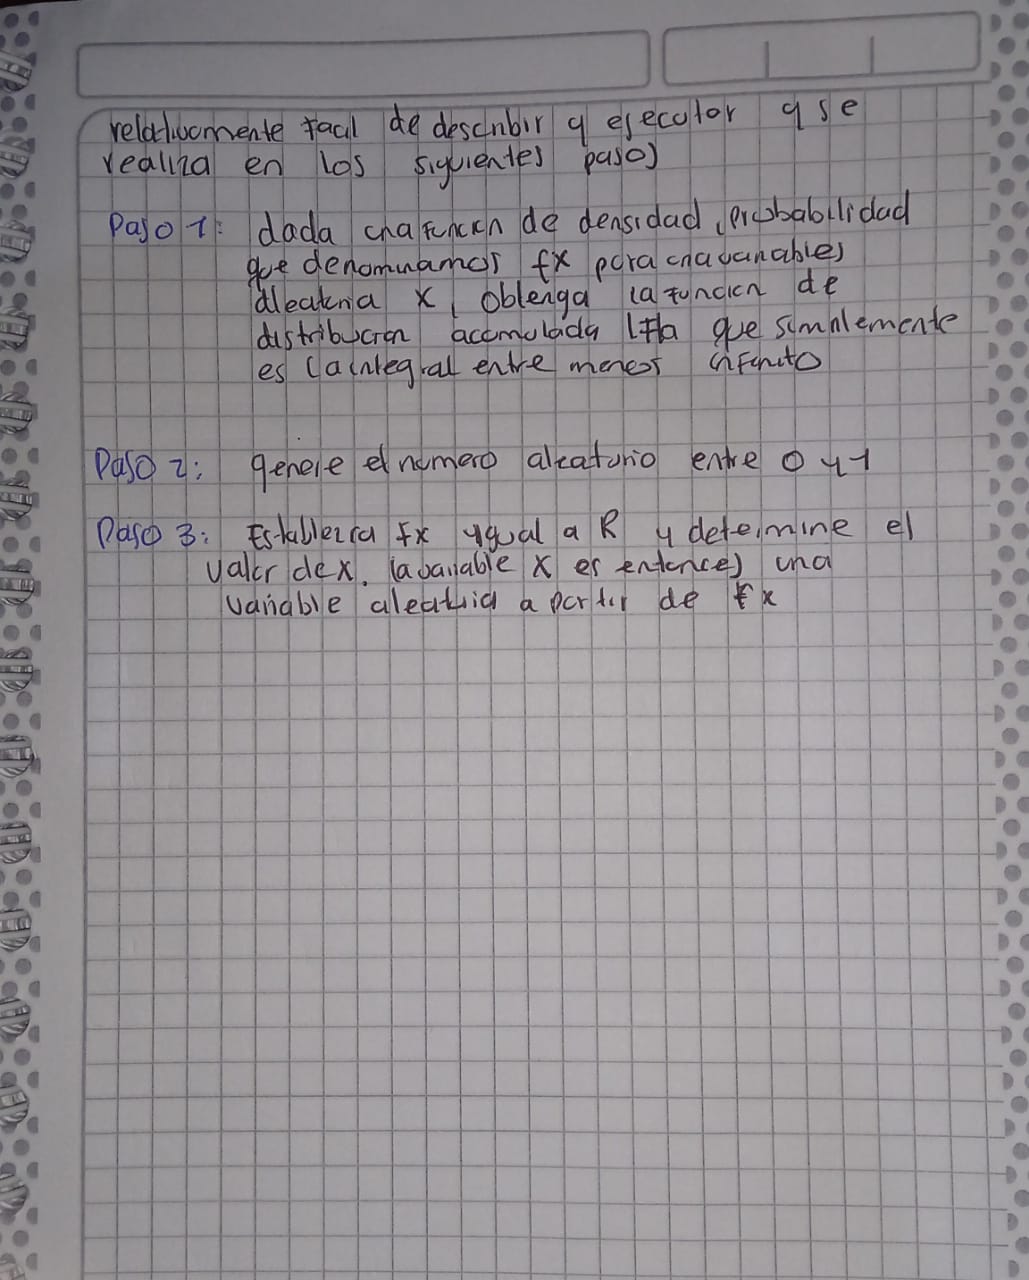 relativamente facil de describir y ejecutar y se
realiza en los siguientes pasos
Paso 1: dada una funcion de densidad, probabilidad
que denominamos fx para una variables
aleatoria x, obtenga la funcion de
distribucion acomulada que simplemente
es la integral entre menos infinito
Paso 2: genere el numero aleatorio entre 0 y 1
Paso 3: Establezca fx ygual a R y determine el
valor de x. la variable x es entonces una
variable aleatoria a partir de fx